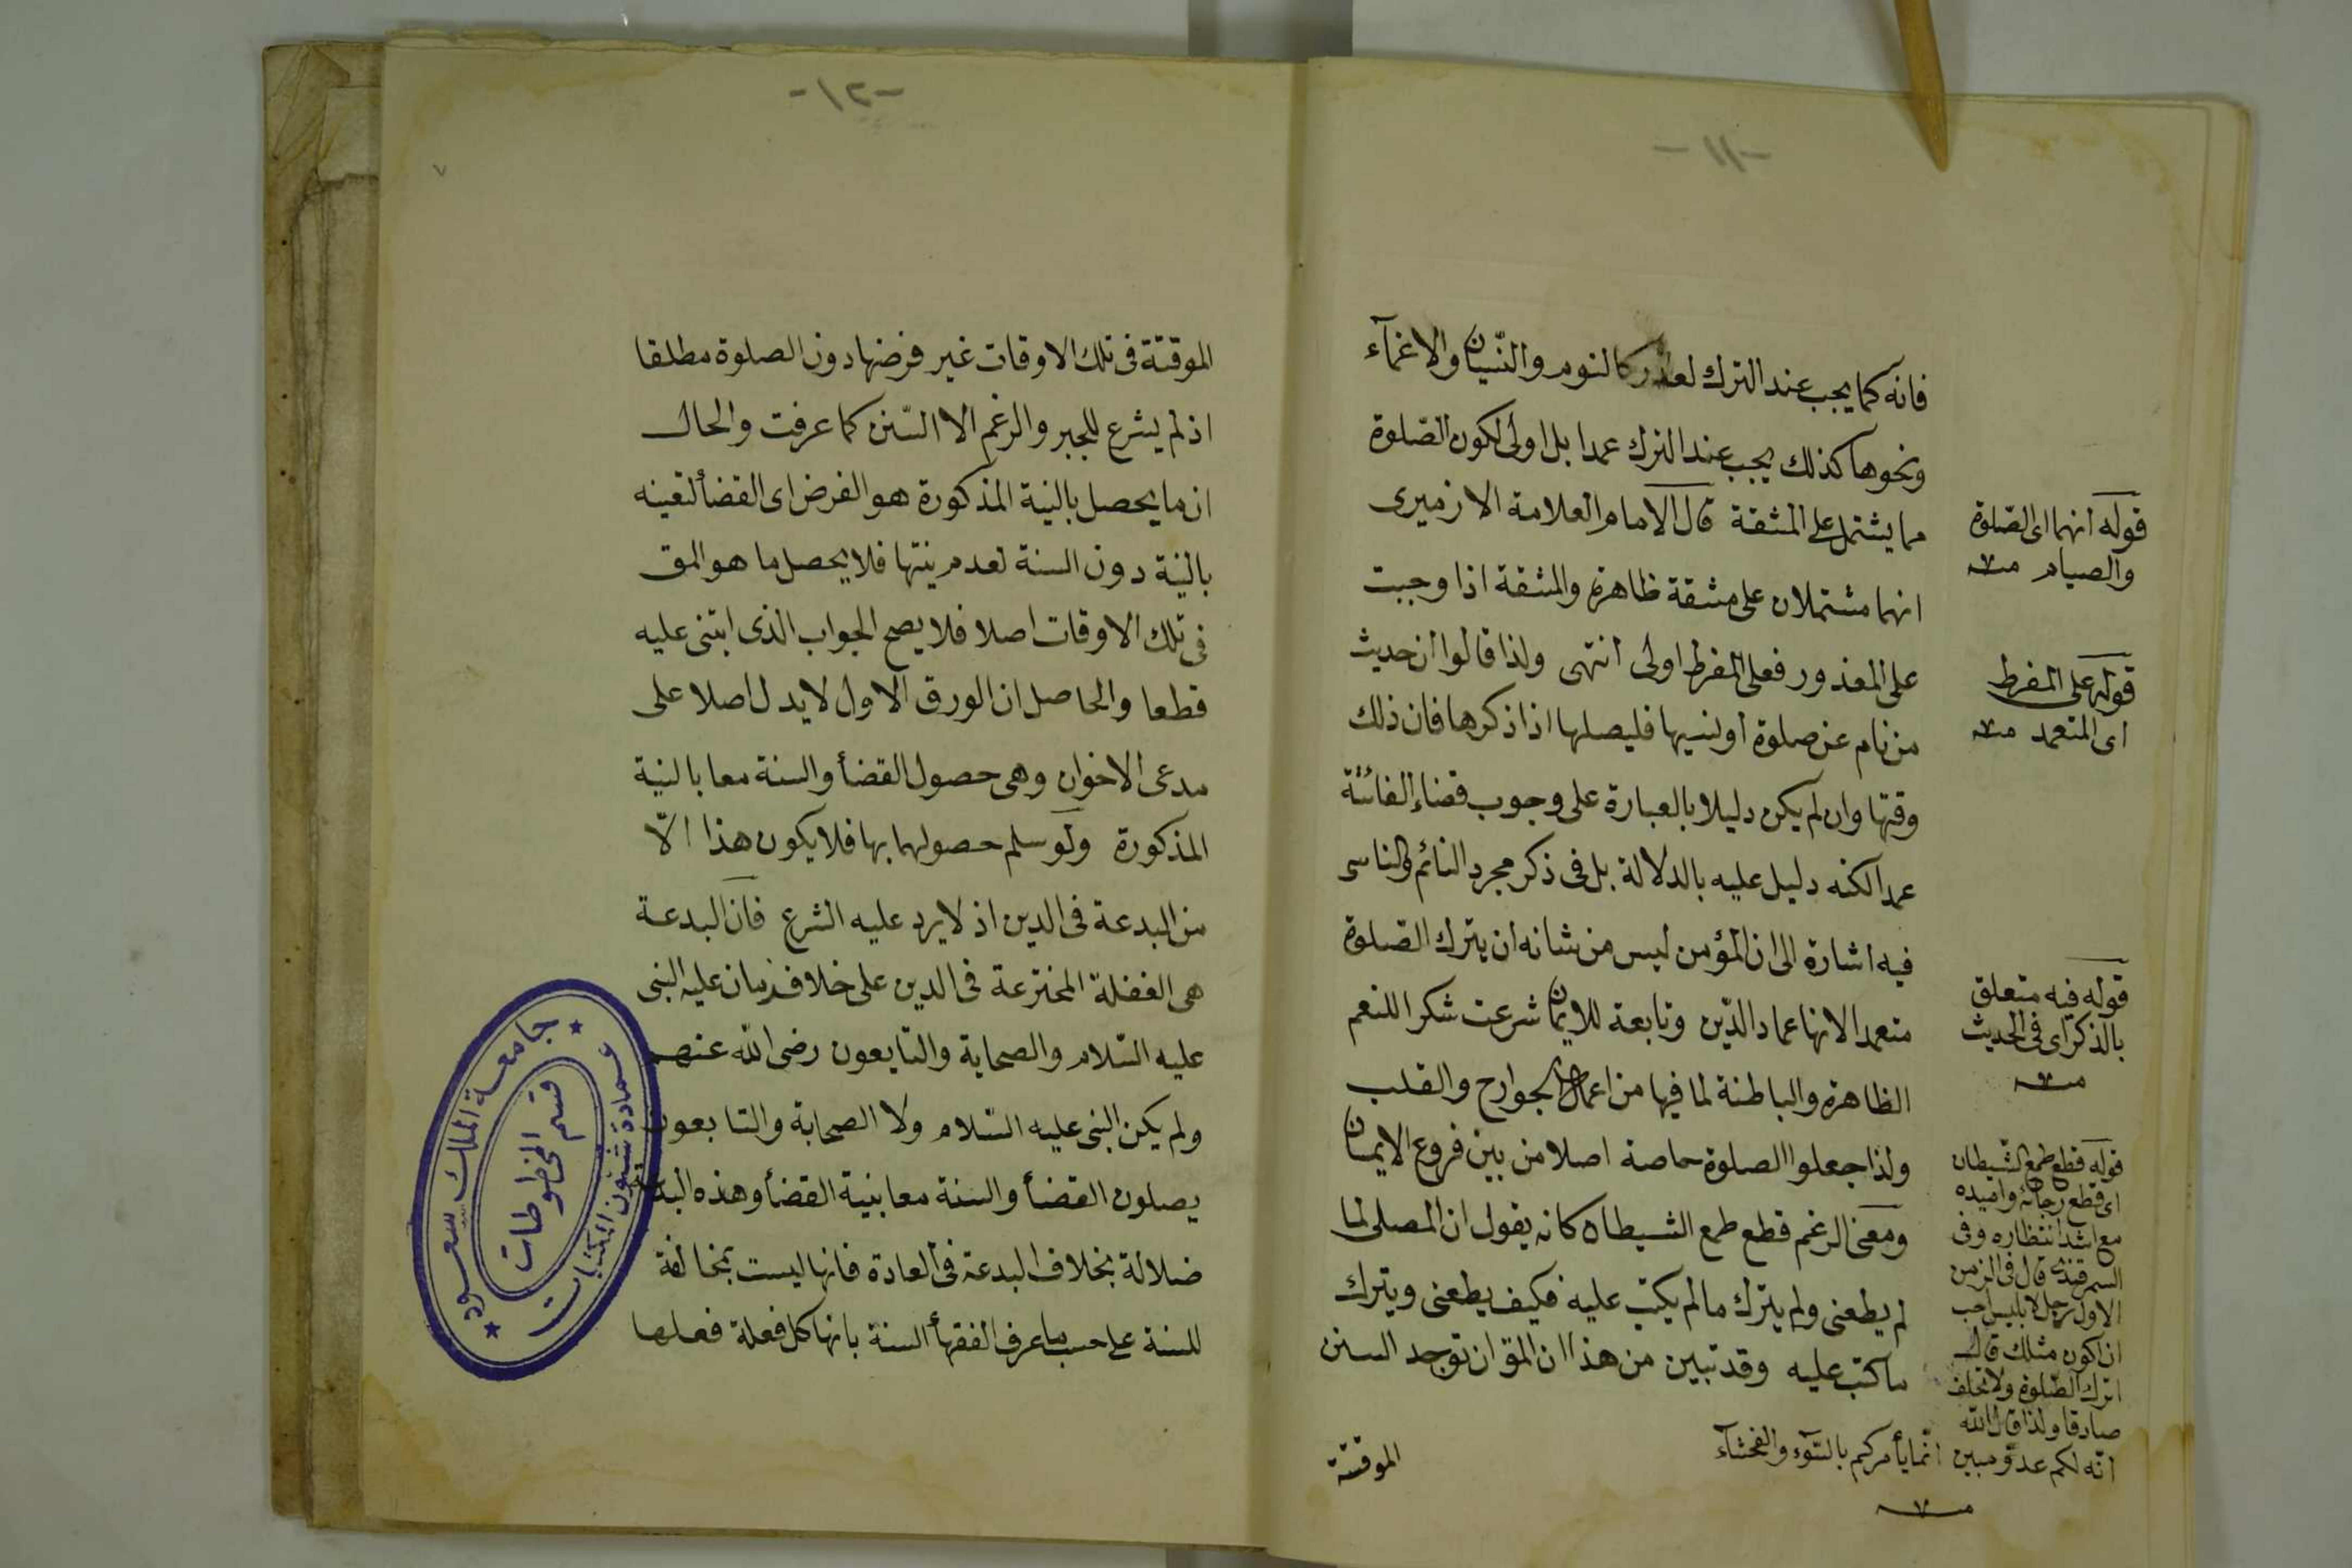 -١١-
فانه كما يجب عند الترك لعذر كالنوم والنسيان والاغمآء
ونحوها كذلك يجب عند الترك عمدا بل اولى لكون الصّلوة
مما يشتمل على المشقة قال الامام العلامة الازميرى
انهما مشتملان على مشقة ظاهرة والمشقة اذا وجبت
على المعذور فعلى المفرط اولى انتهى ولذا قالوا ان حديث
من نام عن صلوة او نسيها فليصلها اذا ذكرها فان ذلك
وقتها وان لم يكن دليلا بالعبارة على وجوب قضاء الفائتة
عمدا لكنه دليل عليه بالدلالة بل فى ذكر مجرد النائم والناسى
فيه اشارة الى ان المؤمن ليس من شانه ان يترك الصّلوة
متعمدا لانها عماد الدّين وتابعة للايمان شرعت شكرا للنعم
الظاهرة والباطنة لما فيها من اعمال الجوارح والقلب
ولذا جعلوا الصلوة اصلا من بين فروع الايمان
ومعنى الرغم قطع طمع الشيطان كانه يقول ان المصلى لما
لم يطعنى ولم يترك ما لم يكتب عليه فكيف يطعنى ويترك
ما كتب عليه وقد تبين من هذا ان المق ان توجد السنن
الموقتة
قوله انهما اى الصّلوة
والصيام منه
قوله على المفرط
اى المتعمد منه
قوله فيه متعلق
بالذكر اى فى الحديث
منه
قوله قطع طمع الشيطان
اى قطع رجائه واميده
مع اشد انتظاره وفى
السمرقندى قال فى الزمن
الاول رجل لابليس احب
ان اكون مثلك قال
اترك الصّلوة ولا تحلف
صادقا ولذا قال الله
انّه لكم عدوّ مبين انّما يأمركم بالسّوء والفحشآء
منه
-١٢-
٧
الموقتة فى تلك الاوقات غير فرضها دون الصلوة مطلقا
اذ لم يشرع للجبر والرغم الا السّنن كما عرفت والحال
ان ما يحصل بالنية المذكورة هو الفرض اى القضأ لتعينه
بالنية دون السنة لعدم نيتها فلا يحصل ما هو المق
فى تلك الاوقات اصلا فلا يصح الجواب الذى ابتنى عليه
قطعا والحاصل ان الورق الاول لا يدل اصلا على
مدعى الاخوان وهى حصول القضأ والسنة معا بالنية
المذكورة ولو سلم حصولهما بها فلا يكون هذا الّا
من البدعة فى الدين اذ لا يرد عليه الشرع فان البدعة
هى الفعلة المخترعة فى الدين على خلاف ما كان عليه النبى
عليه السّلام والصحابة والتابعون رضى الله عنهم
ولم يكن النبى عليه السّلام ولا الصحابة والتابعون
يصلون القضأ والسنة معا بنية القضأ وهذه البدعة
ضلالة بخلاف البدعة فى العادة فانها ليست بمخالفة
للسنة على حسب ما عرف الفقهأ السنة بانها كل فعلة فعلها
جامعة الملك سعود
قسم المخطوطات
عمادة شئون المكتبات